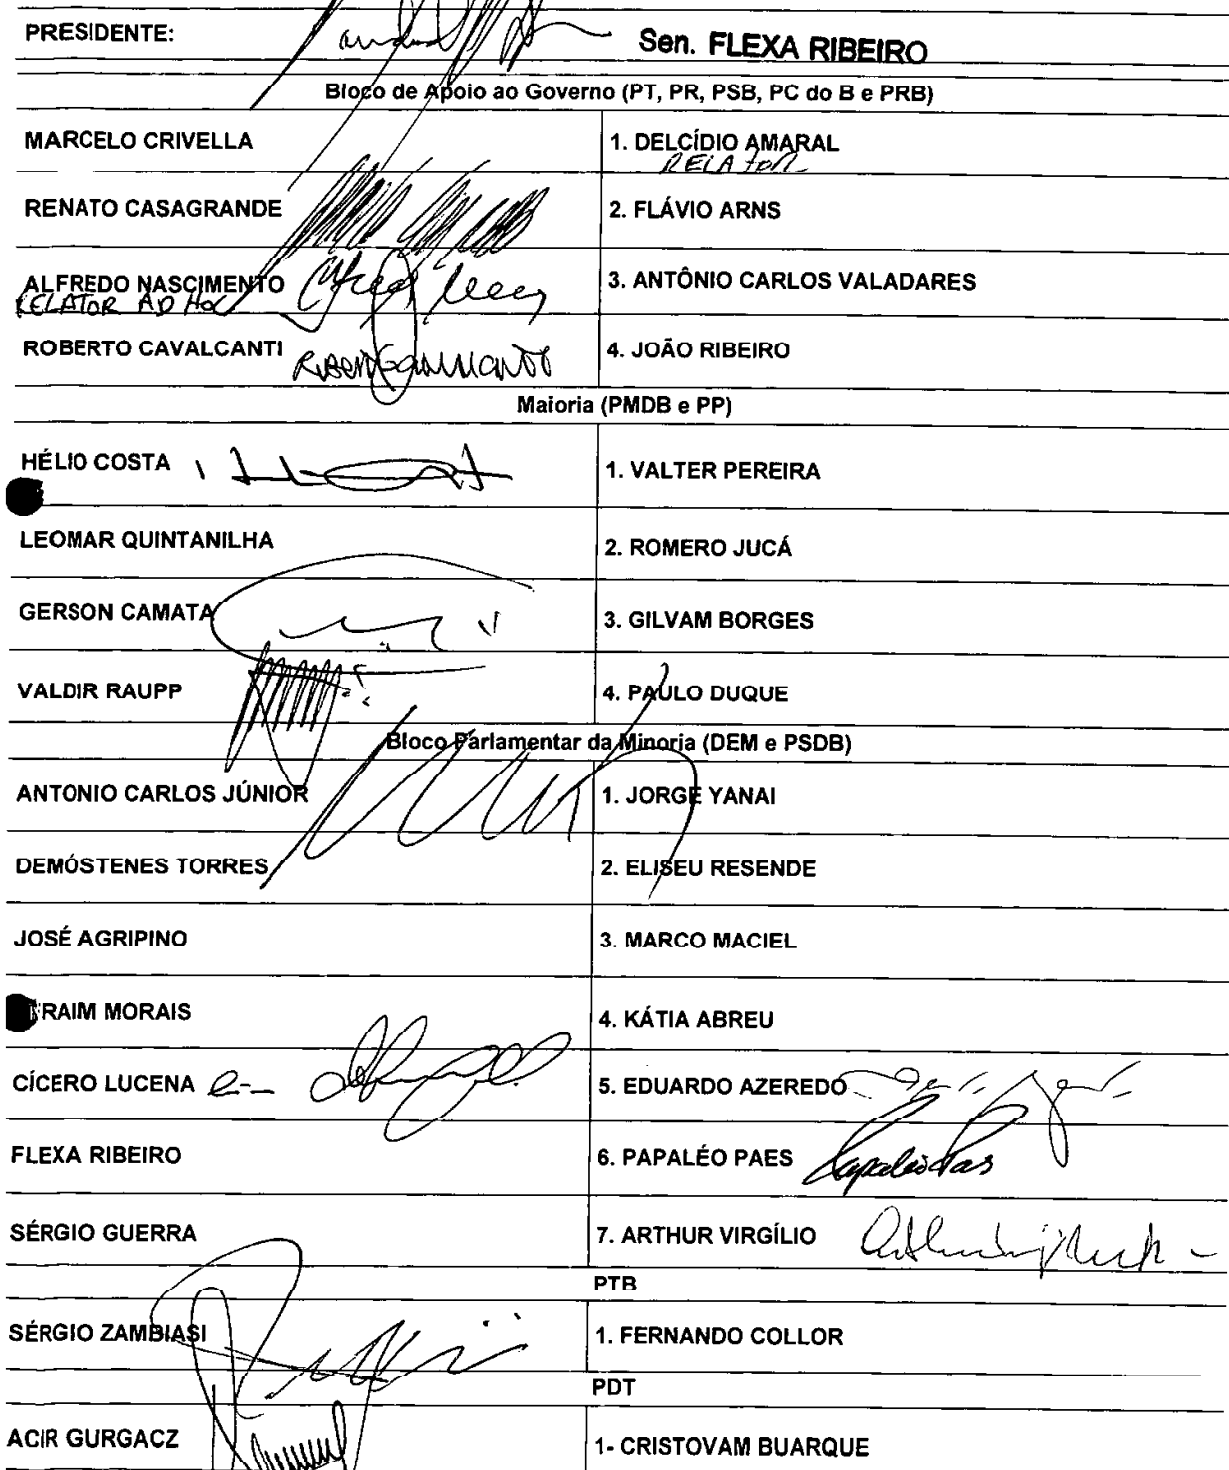 PRESIDENTE: Sen. FLEXA RIBEIRO
Bloco de Apoio ao Governo (PT, PR, PSB, PC do B e PRB)
MARCELO CRIVELLA 1. DELCÍDIO AMARAL
RELATOR
RENATO CASAGRANDE 2. FLÁVIO ARNS
ALFREDO NASCIMENTO 3. ANTÔNIO CARLOS VALADARES
RELATOR AD HOC
ROBERTO CAVALCANTI 4. JOÃO RIBEIRO
Maioria (PMDB e PP)
HÉLIO COSTA 1. VALTER PEREIRA
LEOMAR QUINTANILHA 2. ROMERO JUCÁ
GERSON CAMATA 3. GILVAM BORGES
VALDIR RAUPP 4. PAULO DUQUE
Bloco Parlamentar da Minoria (DEM e PSDB)
ANTONIO CARLOS JÚNIOR 1. JORGE YANAI
DEMÓSTENES TORRES 2. ELISEU RESENDE
JOSÉ AGRIPINO 3. MARCO MACIEL
RAIM MORAIS 4. KÁTIA ABREU
CÍCERO LUCENA 5. EDUARDO AZEREDO
FLEXA RIBEIRO 6. PAPALÉO PAES Papaléo Paes
SÉRGIO GUERRA 7. ARTHUR VIRGÍLIO
PTB
SÉRGIO ZAMBIASI 1. FERNANDO COLLOR
PDT
ACIR GURGACZ 1- CRISTOVAM BUARQUE